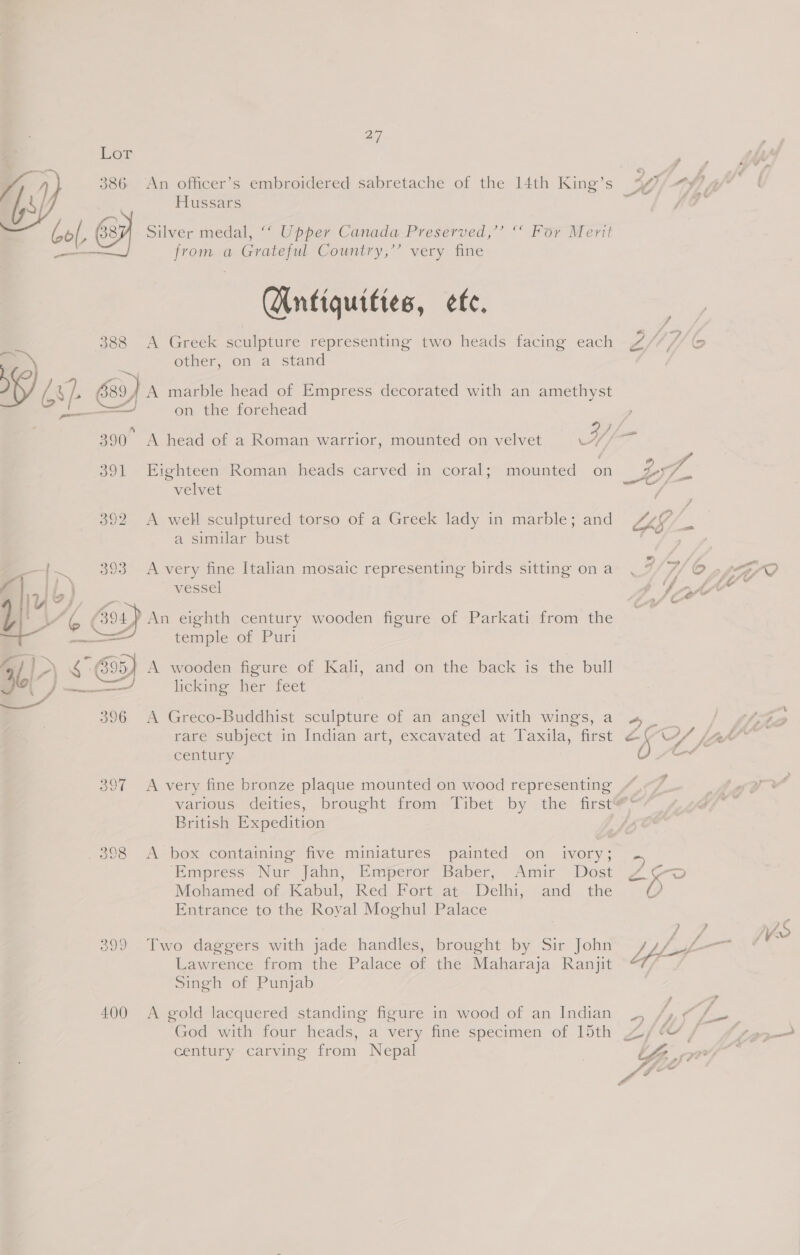 27
Lot
386 An officer's embroidered sabretache of the 14th King's
Hussars
387 Silver medal, “ Upper Canada Preserved,” “ For Merit
from a Grateful Country,” very fine
Antiquities, etc.
388 A Greek sculpture representing two heads facing each
other, on a stand
389 A marble head of Empress decorated with an amethyst
on the forehead
390 A head of a Roman warrior, mounted on velvet
391 Eighteen Roman heads carved in coral; mounted on
velvet
392 A well sculptured torso of a Greek lady in marble; and
a similar bust
393 A very fine Italian mosaic representing birds sitting on a
vessel
394 An eighth century wooden figure of Parkati from the
temple of Puri
395 A wooden figure of Kali, and on the back is the bull
licking her feet
396 A Greco-Buddhist sculpture of an angel with wings, a
rare subject in Indian art, excavated at Taxila, first
century
397 A very fine bronze plaque mounted on wood representing
various deities, brought from Tibet by the first
British Expedition
398 A box containing five miniatures painted on ivory;
Empress Nur Jahn, Emperor Baber, Amir Dost
Mohamed of Kabul, Red Fort at Delhi, and the
Entrance to the Royal Moghul Palace
399 Two daggers with jade handles, brought by Sir John
Lawrence from the Palace of the Maharaja Ranjit
Singh of Punjab
400 A gold lacquered standing figure in wood of an Indian
God with four heads, a very fine specimen of 15th
century carving from Nepal